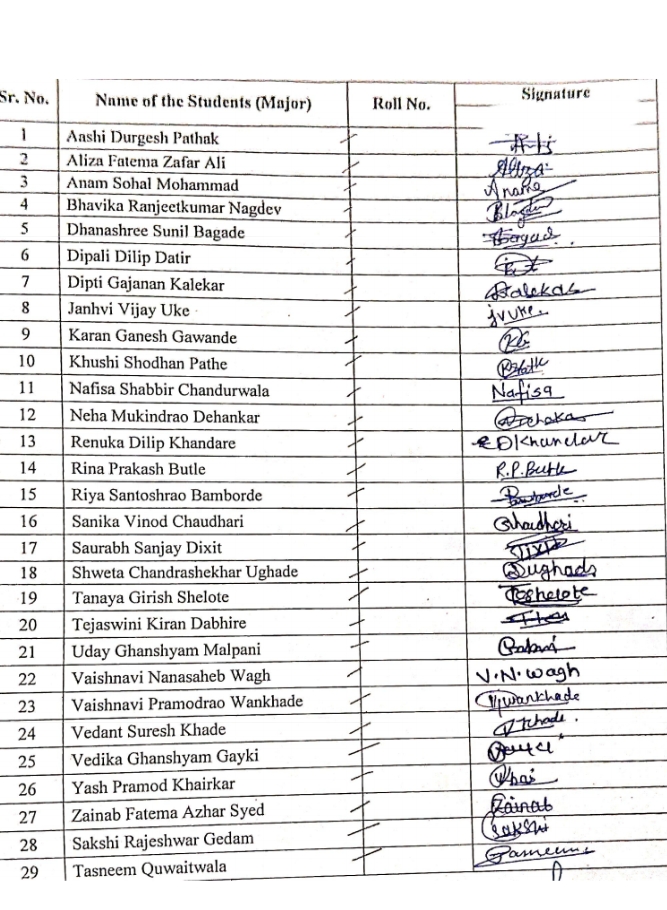 Sr. No. Name of the Students (Major) Roll No. Signature
1 Aashi Durgesh Pathak
2 Aliza Fatema Zafar Ali Aliza
3 Anam Sohal Mohammad Anam
4 Bhavika Ranjeetkumar Nagdev
5 Dhanashree Sunil Bagade
6 Dipali Dilip Datir
7 Dipti Gajanan Kalekar Kalekar
8 Janhvi Vijay Uke jvuke.
9 Karan Ganesh Gawande KG
10 Khushi Shodhan Pathe
11 Nafisa Shabbir Chandurwala Nafisa
12 Neha Mukindrao Dehankar
13 Renuka Dilip Khandare
14 Rina Prakash Butle R.P.Butle
15 Riya Santoshrao Bamborde Bamborde
16 Sanika Vinod Chaudhari
17 Saurabh Sanjay Dixit Dixit
18 Shweta Chandrashekhar Ughade
19 Tanaya Girish Shelote
20 Tejaswini Kiran Dabhire
21 Uday Ghanshyam Malpani
22 Vaishnavi Nanasaheb Wagh V.N.wagh
23 Vaishnavi Pramodrao Wankhade
24 Vedant Suresh Khade
25 Vedika Ghanshyam Gayki
26 Yash Pramod Khairkar
27 Zainab Fatema Azhar Syed Zainab
28 Sakshi Rajeshwar Gedam Sakshi
29 Tasneem Quwaitwala